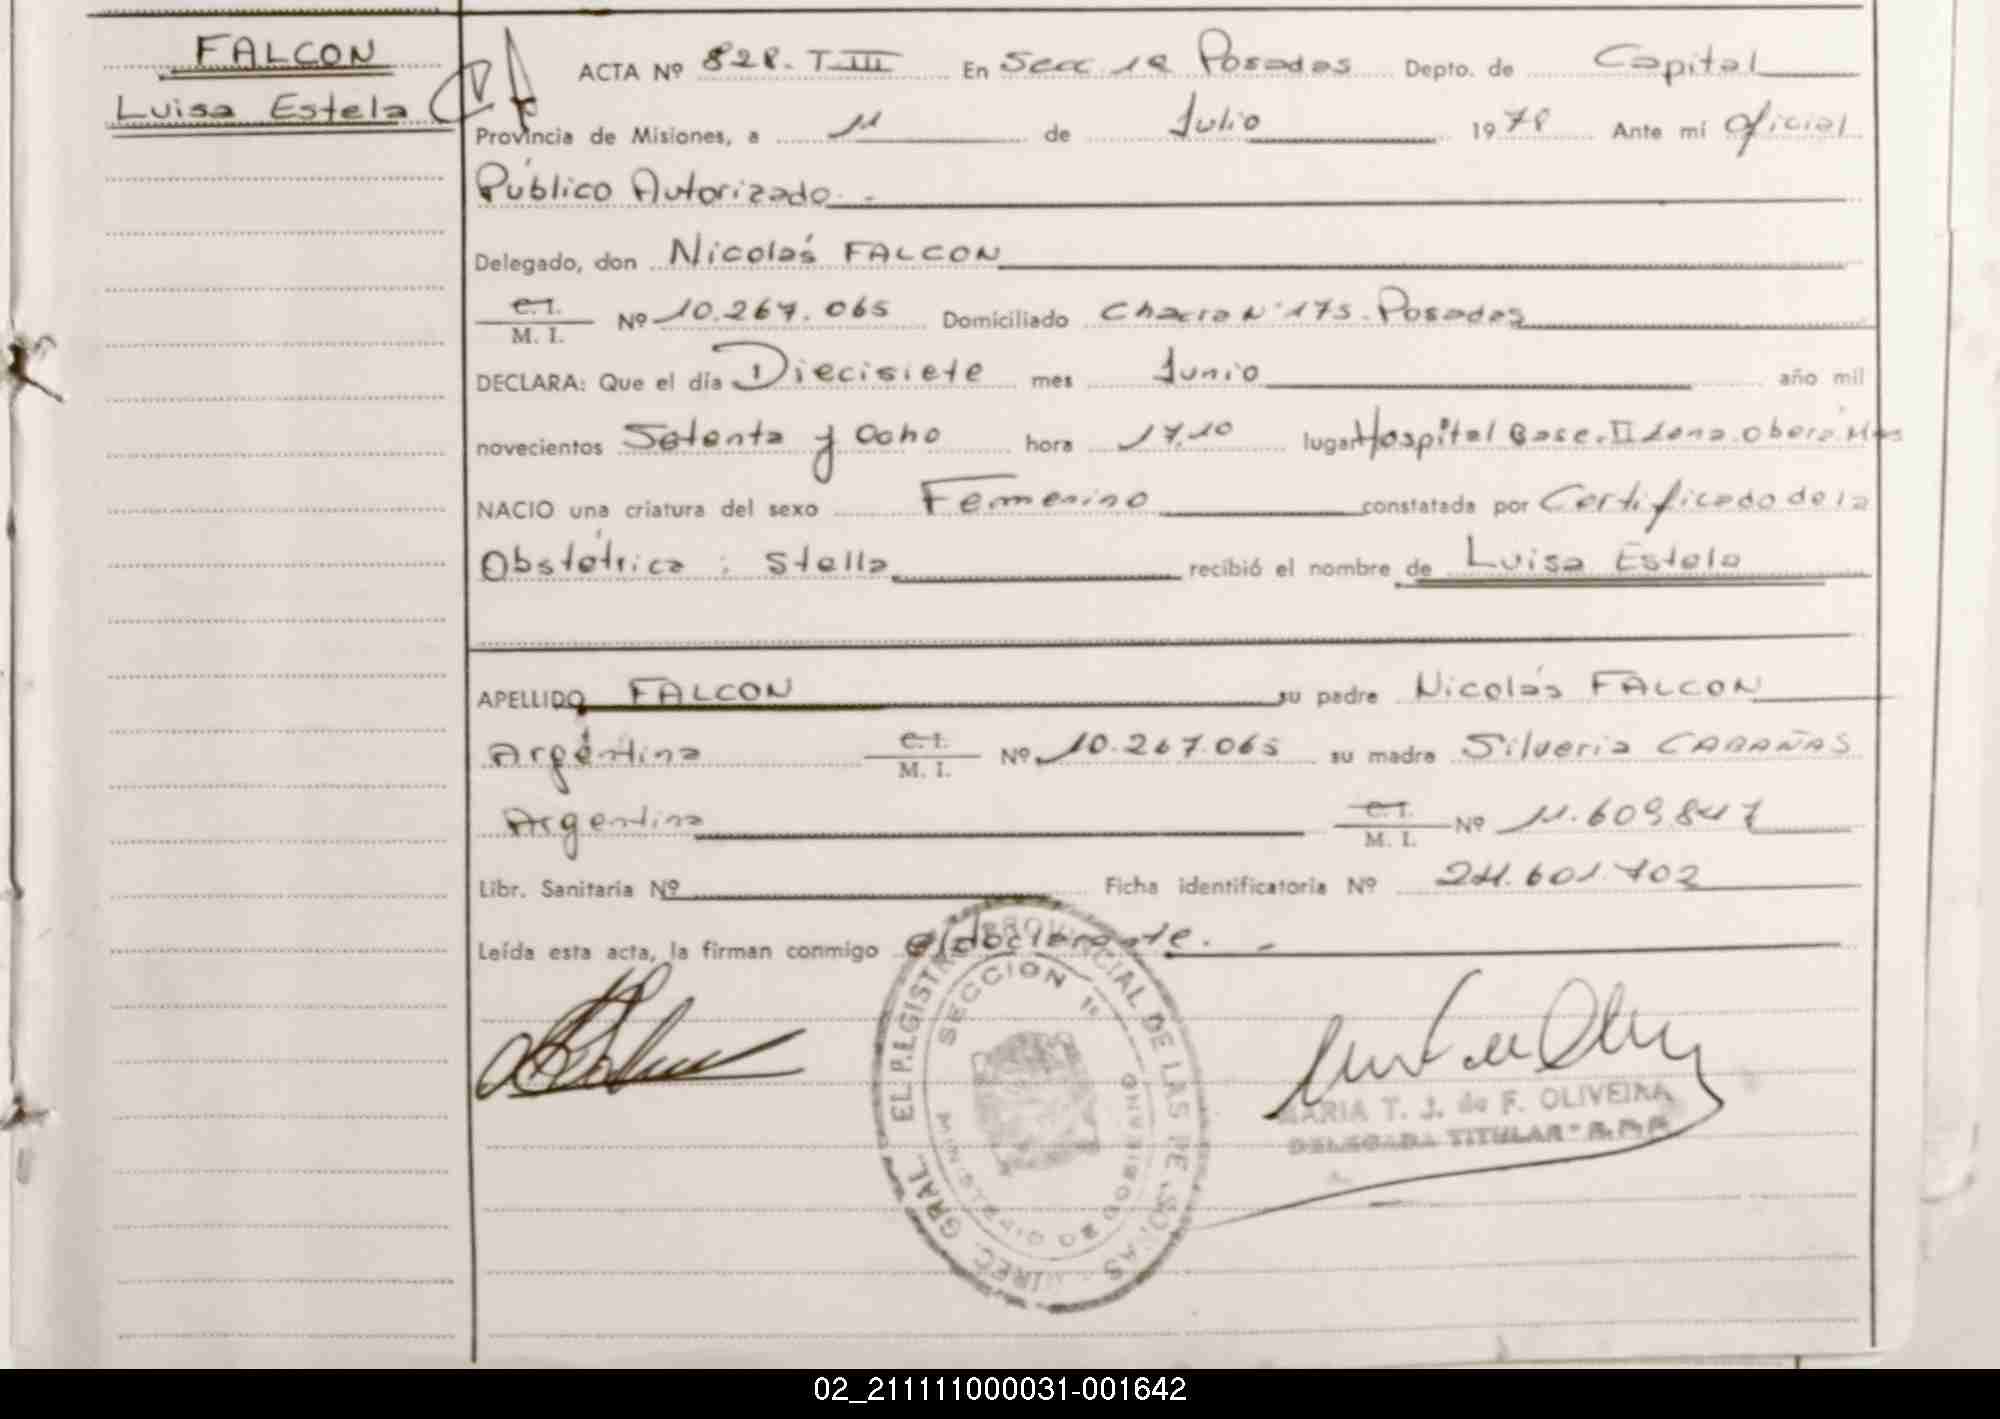 FALCON
Luisa Estela
ACTA Nº 828. T III En Secc 1ª Posadas Depto. de Capital
Provincia de Misiones, a 11 de Julio 1978 Ante mí Oficial
Público Autorizado. -
Delegado, don Nicolás FALCON
C. I.
M. I. Nº 10.267.065 Domiciliado Chacra Nº 175. Posadas
DECLARA: Que el día Diecisiete mes Junio año mil
novecientos Setenta y Ocho hora 17,10 lugar Hospital Base. II Zona. Oberá Mnes
NACIO una criatura del sexo Femenino constatada por Certificado de la
Obstétrica : Stella recibió el nombre de Luisa Estela
APELLIDO FALCON su padre Nicolás FALCON
Argentina C. I. M. I. Nº 10.267.065 su madre Silveria CABAÑAS
Argentina C. I. M. I. Nº 11.609.847
Libr. Sanitaria Nº Ficha identificatoria Nº 24.601.702
Leída esta acta, la firman conmigo el declarante. -
DIREC. GRAL. DEL REGISTRO PROVINCIAL DE LAS PERSONAS
SECCION 1ª
MINISTERIO DE GOBIERNO
MARIA T. J. de F. OLIVEIRA
DELEGADA TITULAR - R.P.P.
02_211111000031-001642